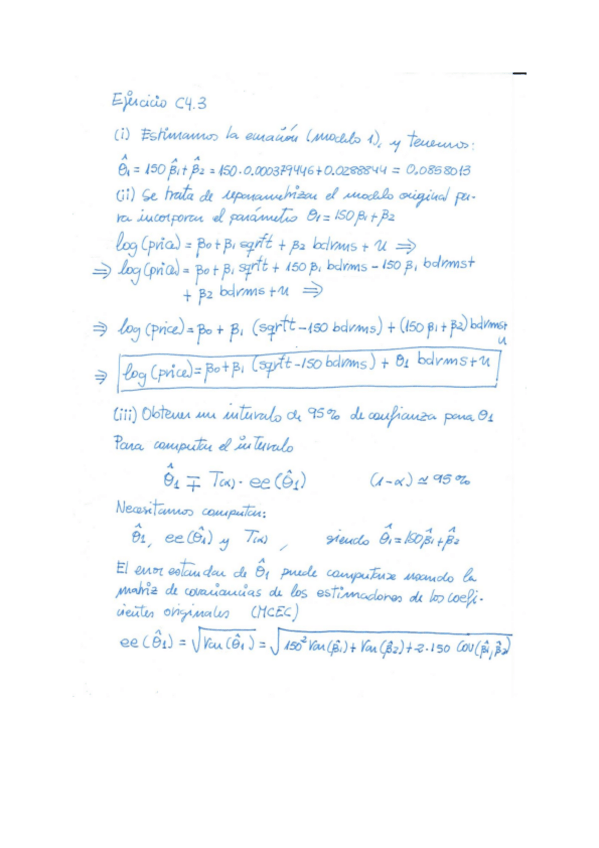 Ejercicio C4.3
(i) Estimamos la ecuación (modelo 1), y tenemos:
θ̂₁ = 150 β̂₁ + β̂₂ = 150 · 0.000379446 + 0.0288844 = 0.0858013
(ii) Se trata de reparametrizar el modelo original pa-
ra incorporar el parámetro θ₁ = 150 β₁ + β₂
log(price) = β₀ + β₁ sqrft + β₂ bdrms + u ⇒
⇒ log(price) = β₀ + β₁ sqrft + 150 β₁ bdrms − 150 β₁ bdrms +
+ β₂ bdrms + u ⇒
⇒ log(price) = β₀ + β₁ (sqrft − 150 bdrms) + (150 β₁ + β₂) bdrms +
u
⇒ log(price) = β₀ + β₁ (sqrft − 150 bdrms) + θ₁ bdrms + u
(iii) Obtener un intervalo de 95% de confianza para θ₁
Para computar el intervalo
θ̂₁ ∓ T(α) · ee(θ̂₁) (1−α) ≃ 95%
Necesitamos computar:
θ̂₁, ee(θ̂₁) y T(α), siendo θ̂₁ = 150 β̂₁ + β̂₂
El error estandar de θ̂₁ puede computarse usando la
matriz de covariancias de los estimadores de los coefi-
cientes originales (MCEC)
ee(θ̂₁) = √Var(θ̂₁) = √150² Var(β̂₁) + Var(β̂₂) + 2·150 Cov(β̂₁, β̂₂)